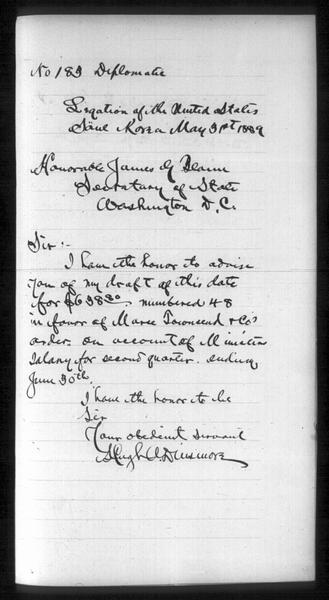 No 183 Diplomatic
Legation of the United States
Söul Korea May 31st 1889
Honorable James G Blaine
Secretary of State
Washington D.C.
Sir:-
I have the honor to advise
you of my draft of this date
for $638 numbered 48
in favor of Morse Townsend & Co's
order on account of Minister
salary for second quarter ending
June 30th.
I have the honor to be
Sir
Your obedient servant
Hugh A Dinsmore